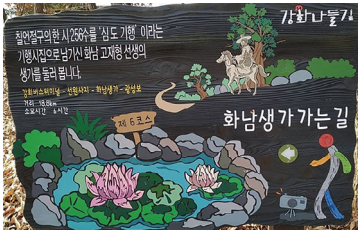 강화나들길
칠언절구의 한시 256수를 '심도 기행' 이라는
기행시집으로 남기신 화남 고재형 선생의
생가를 둘러 봅니다.
강화버스터미널 - 선원사지 - 화남생가 - 광성보
거리 18.8km
소요시간 6시간
화남생가 가는길
제 6코스